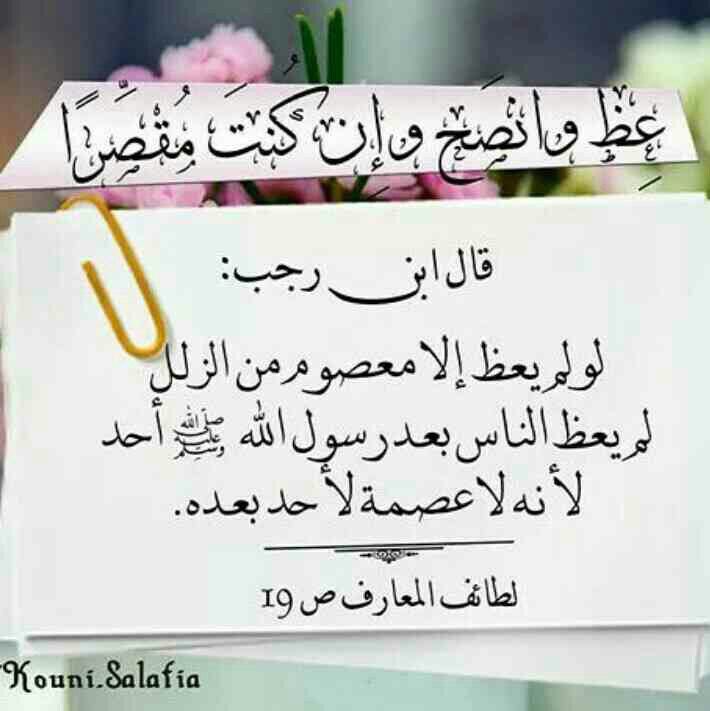 عِظْ وانصَح وإن كُنتَ مُقصِّرًا
قال ابن رجب:
لو لم يعظ إلا معصوم من الزلل
لم يعظ الناس بعد رسول الله ﷺ أحد
لأنه لا عصمة لأحد بعده.
لطائف المعارف ص 19
Kouni.Salafia